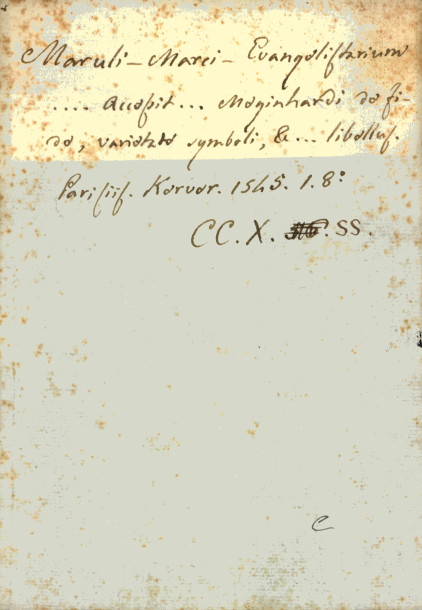 Maruli - Marci - Evangelistarium
.... Accessit ... Meginhardi de fi-
de, varietate symboli, &... libellus.
Parisiis. Kerver. 1545. 1. 8°
CC. X. SS.
C